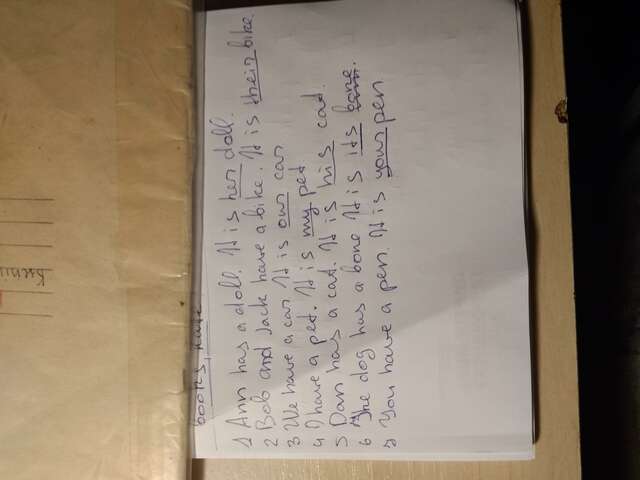 books, have
1 Ann has a doll. It is her doll.
2 Bob and Jack have a bike. It is their bike.
3 We have a car. It is our car
4 I have a pet. It is my pet
5 Dan has a cat. It is his cat.
6 The dog has a bone It is its bone.
7 You have a pen. It is your pen